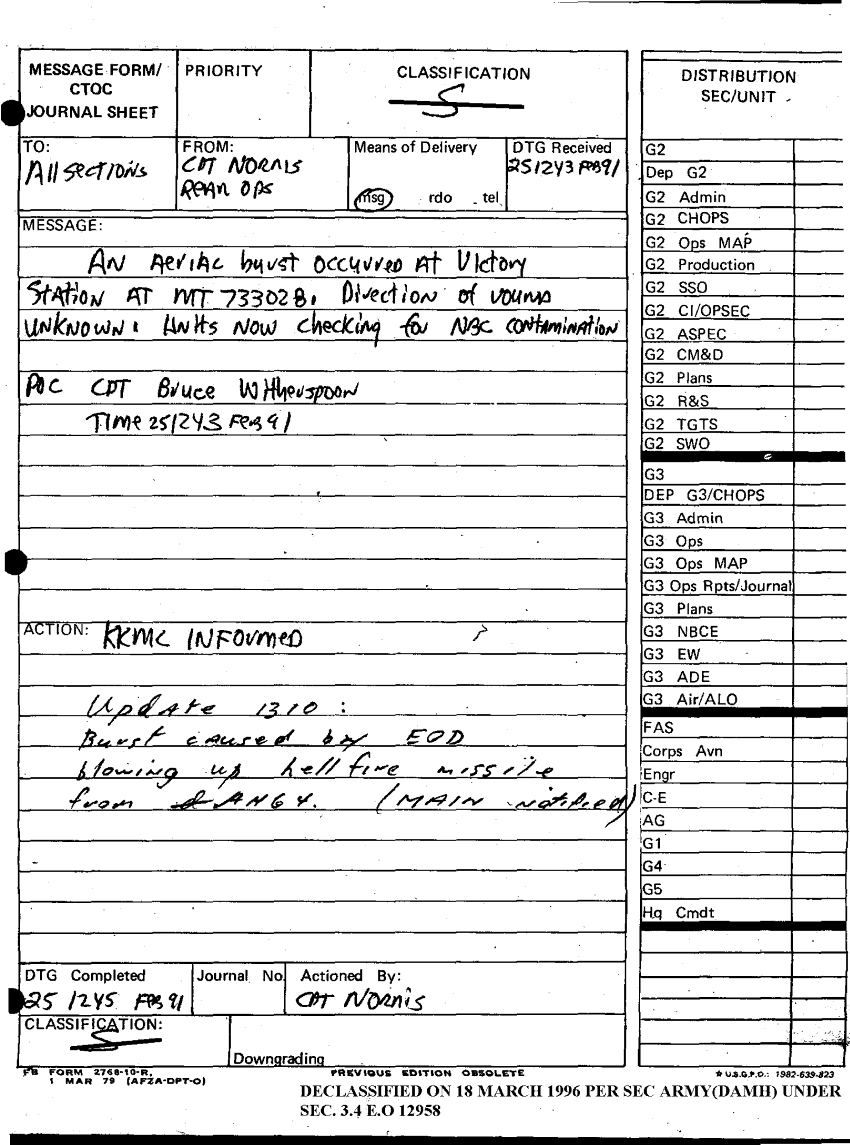 MESSAGE FORM/
CTOC
JOURNAL SHEET
PRIORITY
CLASSIFICATION
S
TO:
All sections
FROM:
CPT NORRIS
REAR OPS
Means of Delivery
msg rdo tel
DTG Received
251243 FEB 91
MESSAGE:
AN AERIAL burst occurred AT Victory
STATION AT MT 733028. Direction of round
UNKNOWN. Units NOW checking for NBC CONTAMINATION
POC CPT Bruce Witherspoon
TIME 251243 FEB 91
ACTION: KKMC INFORMED
Update 1310:
Burst caused by EOD
blowing up hellfire missile
from AH64. (MAIN notified)
DTG Completed
25 1245 FEB 91
Journal No.
Actioned By:
CPT NORRIS
CLASSIFICATION:
S
Downgrading
FB FORM 2768-10-R,
1 MAR 79 (AFZA-DPT-O)
PREVIOUS EDITION OBSOLETE
DISTRIBUTION
SEC/UNIT
G2
Dep G2
G2 Admin
G2 CHOPS
G2 Ops MAP
G2 Production
G2 SSO
G2 CI/OPSEC
G2 ASPEC
G2 CM&D
G2 Plans
G2 R&S
G2 TGTS
G2 SWO
G3
DEP G3/CHOPS
G3 Admin
G3 Ops
G3 Ops MAP
G3 Ops Rpts/Journal
G3 Plans
G3 NBCE
G3 EW
G3 ADE
G3 Air/ALO
FAS
Corps Avn
Engr
C-E
AG
G1
G4
G5
Hq Cmdt
★ U.S.G.P.O.: 1982-539-823
DECLASSIFIED ON 18 MARCH 1996 PER SEC ARMY(DAMH) UNDER
SEC. 3.4 E.O 12958